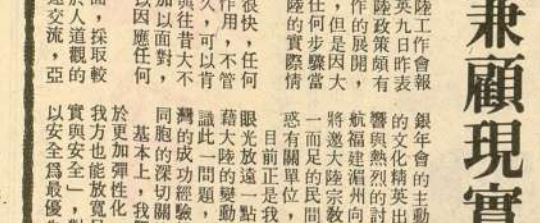 兼顧現實
陸工作會報
英九日昨表
陸政策頗有
作的展開，
，但是因大
任何步驟當
陸的實際情
很快，任何
作用，不管
久，可以肯
與往昔大不
加以面對，
以因應任何
面，採取較
於人道觀的
交流，亞
銀年會的主動
的文化精英出
響與熱烈的討
航福建湄州向
將邀大陸宗教
一而足的民間
惑有關單位，
目前正是我
眼光放遠一點
藉大陸的變動
識此一問題，
灣的成功經驗
同胞的深切關
基本上，我
於更加彈性化
我方也能放寬
實與安全」，
以安全爲最優